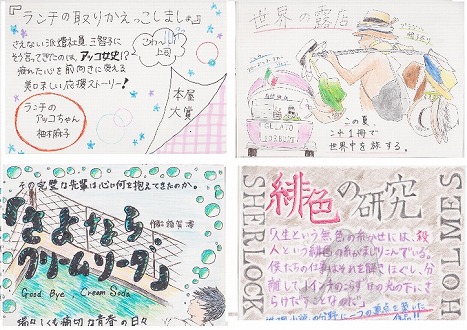 『ランチの取りかえっこしましょ』
さえない派遣社員 三智子に
そう言ってきたのは、アッコ女史!?
疲れた心を前向きに変える
美味しい応援ストーリー!
こわ〜い
上司
本屋
大賞
ランチの
アッコちゃん
柚木麻子
世界の露店
GELATO
SORBET
この夏
この1冊で
世界中を旅する。
その完璧な先輩は心に何を抱えてきたのか。
『さよなら、
クリームソーダ』
作者: 額賀 澪
Good Bye Cream Soda
瑞々しくも切ない青春の日々
緋色の研究
SHERLOCK
HOLMES
「人生という無色の糸かせには、殺
人という緋色の糸がまじりこんでいる。
僕たちの仕事はそれを解きほぐし、分
離して、1インチのこらず白日の光の下にさ
らけだすことなのだ」